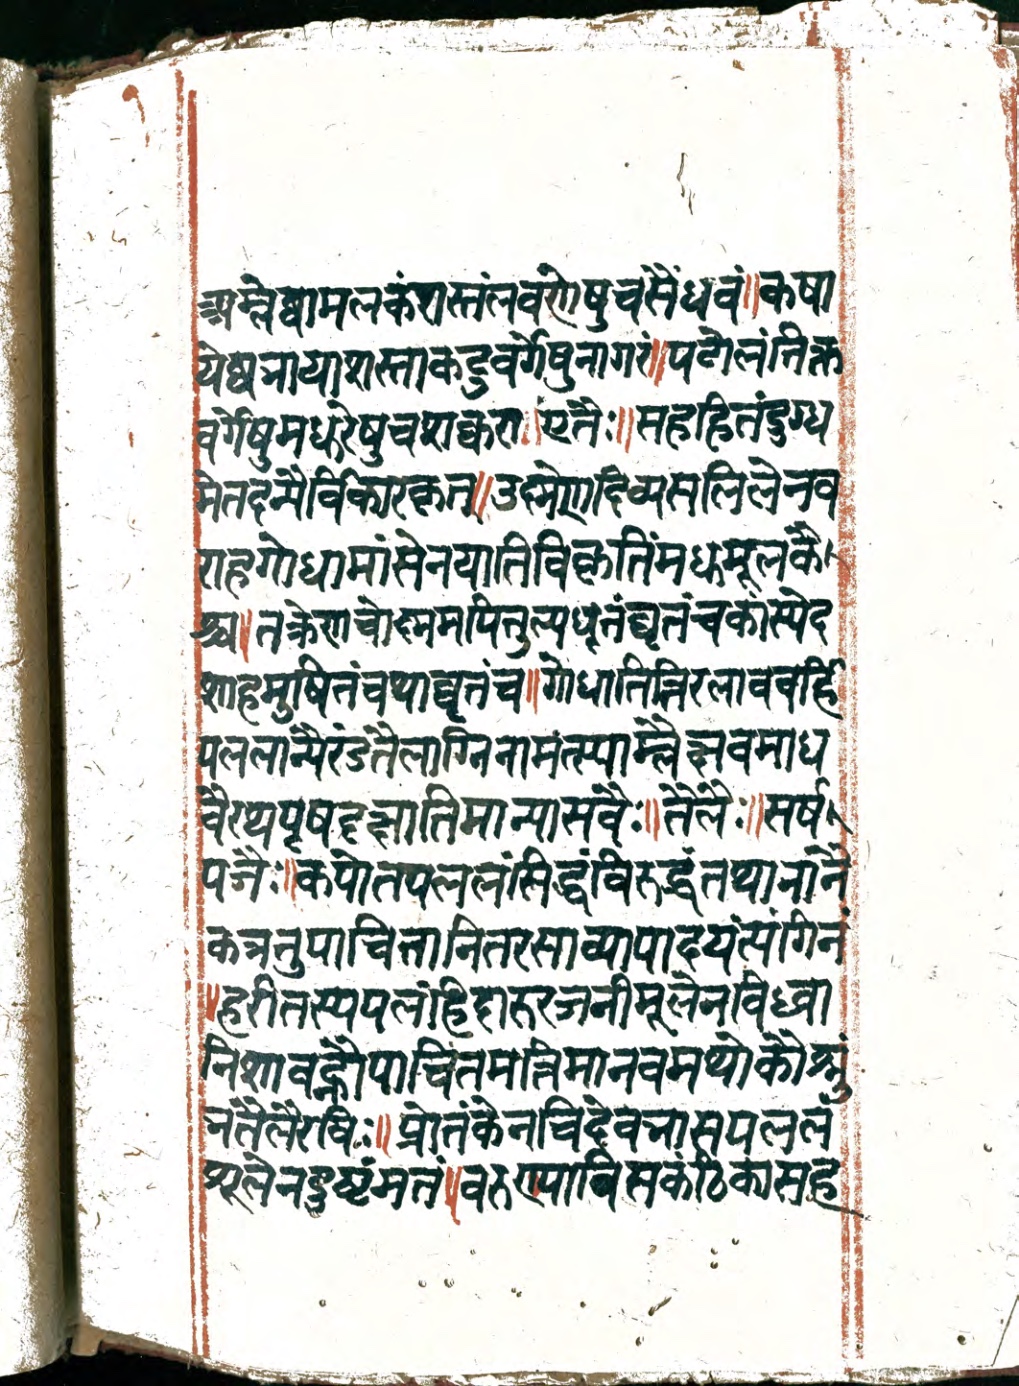 अम्लेष्वामलकंशस्तंलवणेषुचसैंधवं॥कषा
येष्वभयाशस्ताकटुवर्गेषुनागरं॥पटोलंतिक्त
वर्गेषुमधुरेषुचशर्क्करा॥एतैः॥सहहितंदुग्ध
मेतदन्यैर्विकारकृत्॥उष्णेणदिव्यसलिलेनव
राहगोधामांसेनयातिविकृतिंमधुमूलकै
श्च॥तक्रेणचोष्णमपितुल्यधृतंघृतंचकांस्येद
शाहमुषितंचथाघृतंच॥गोधातित्तिरलाववर्हि
पललान्यैरंडतैलाग्निनामंत्स्याम्लैक्षवमाध
वैरथपृषहृज्ञातिमान्यासवैः॥तैलैः॥सर्ष
पजैः॥कपोतपललंसिद्धंविरुद्धंतथानानै
कत्रतुपाचितानितरसाव्यापादयंत्संगिनं
॥हरीतस्यपलंहिदारुरजनीमूलेनविध्वा
निशावह्नौपाचितमत्तिमानवमथोकौश्रुं
नंतैलैरविः॥प्रोतंकेनचिदेवभासपललं
शूलेनदुष्टंमतं॥वरुणपाविसकंठिकासह